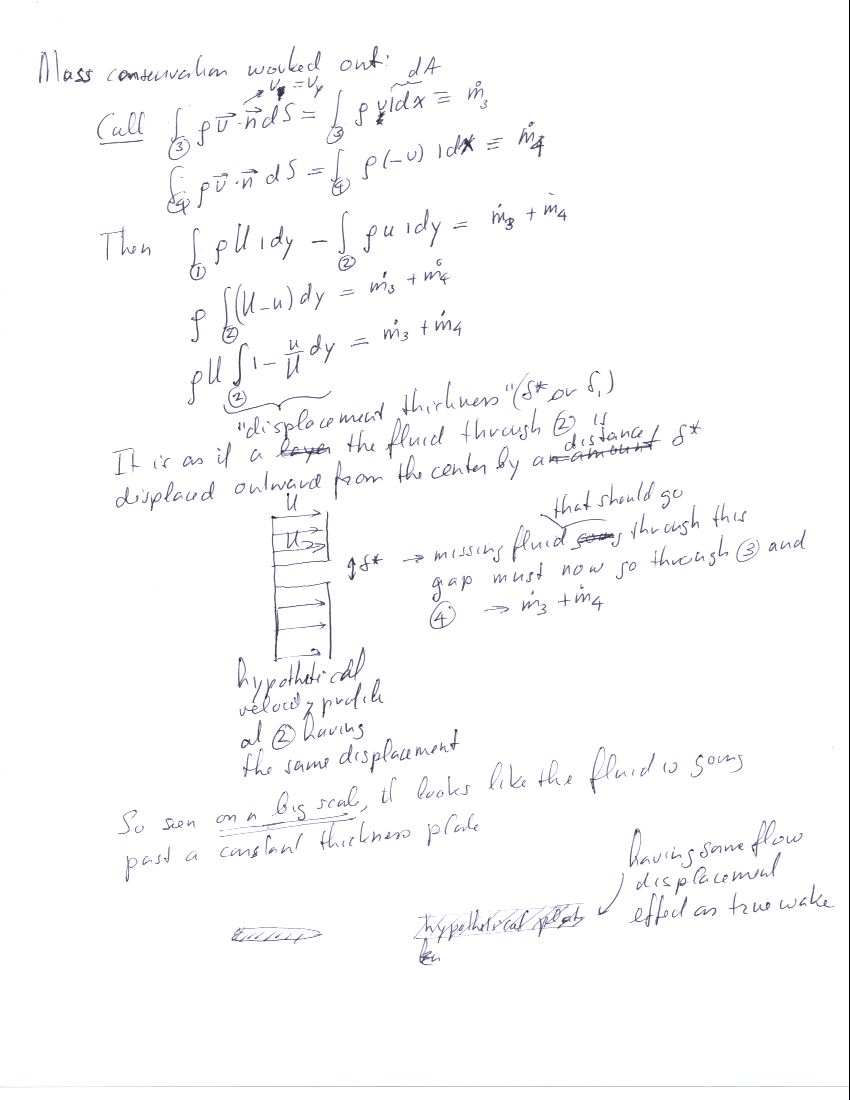 Mass conservation worked out:
v_y = v_y dA
Call ∫_③ ρ v⃗ · n⃗ dS = ∫_③ ρ v 1 dx ≡ ṁ_3
∫_④ ρ v⃗ · n⃗ dS = ∫_④ ρ (-v) 1 dx ≡ ṁ_4
Then ∫_① ρ U 1 dy - ∫_② ρ u 1 dy = ṁ_3 + ṁ_4
ρ ∫_② (U - u) dy = ṁ_3 + ṁ_4
ρ U ∫_② 1 - u/U dy = ṁ_3 + ṁ_4
"displacement thickness" (δ* or δ_1)
It is as if a layer the fluid through ② is
displaced outward from the center by an amount distance δ*
U
U
δ* → missing fluid that should go through this
gap must now go through ③ and
④ → ṁ_3 + ṁ_4
hypothetical
velocity profile
at ② having
the same displacement
So seen on a big scale, it looks like the fluid is going
past a constant thickness plate
having same flow
displacement
effect as true wake
hypothetical plate